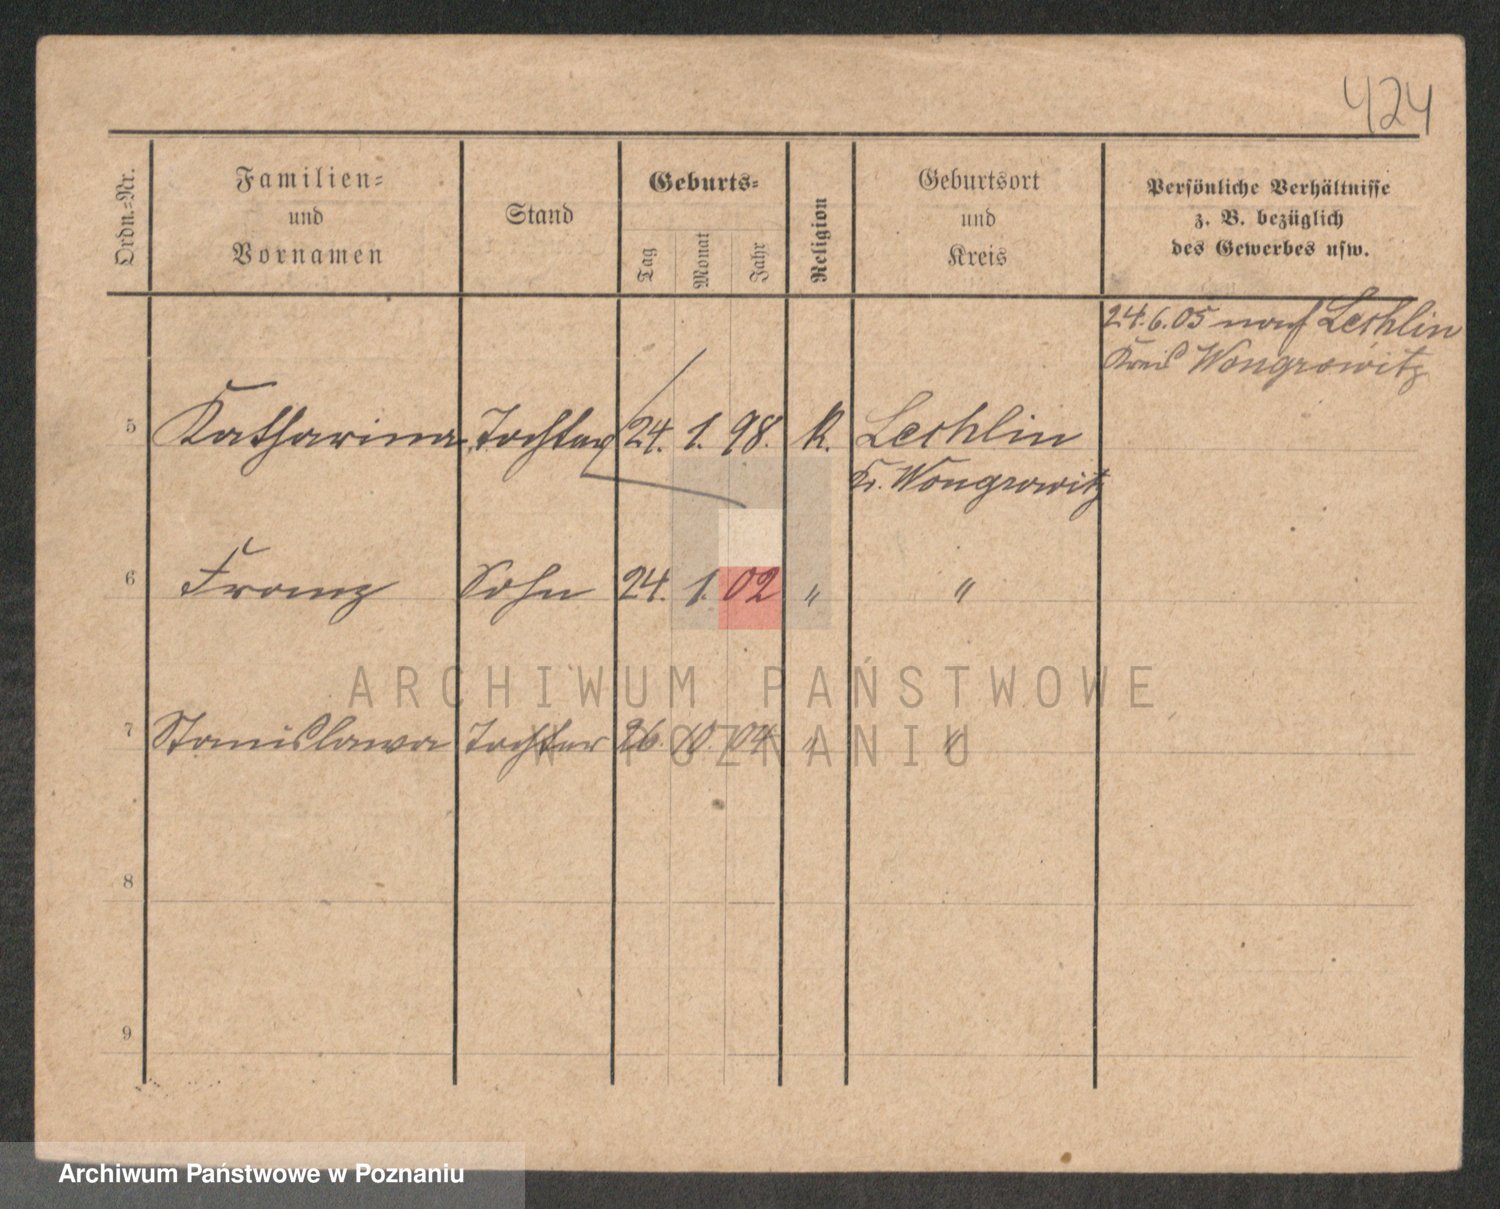 424
Ordn.-Nr.
Familien-
und
Vornamen
Stand
Geburts-
Tag
Monat
Jahr
Religion
Geburtsort
und
Kreis
Persönliche Verhältnisse
z. B. bezüglich
des Gewerbes usw.
24.6.05 nach Lechlin
Kreis Wongrowitz
5 Katharina Tochter 24. 1. 98. K. Lechlin
Kr. Wongrowitz
6 Franz Sohn 24. 1. 02 " "
ARCHIWUM PAŃSTWOWE
7 Stanislawa Tochter 26. 10. 04 " "
W POZNANIU
8
9
Archiwum Państwowe w Poznaniu